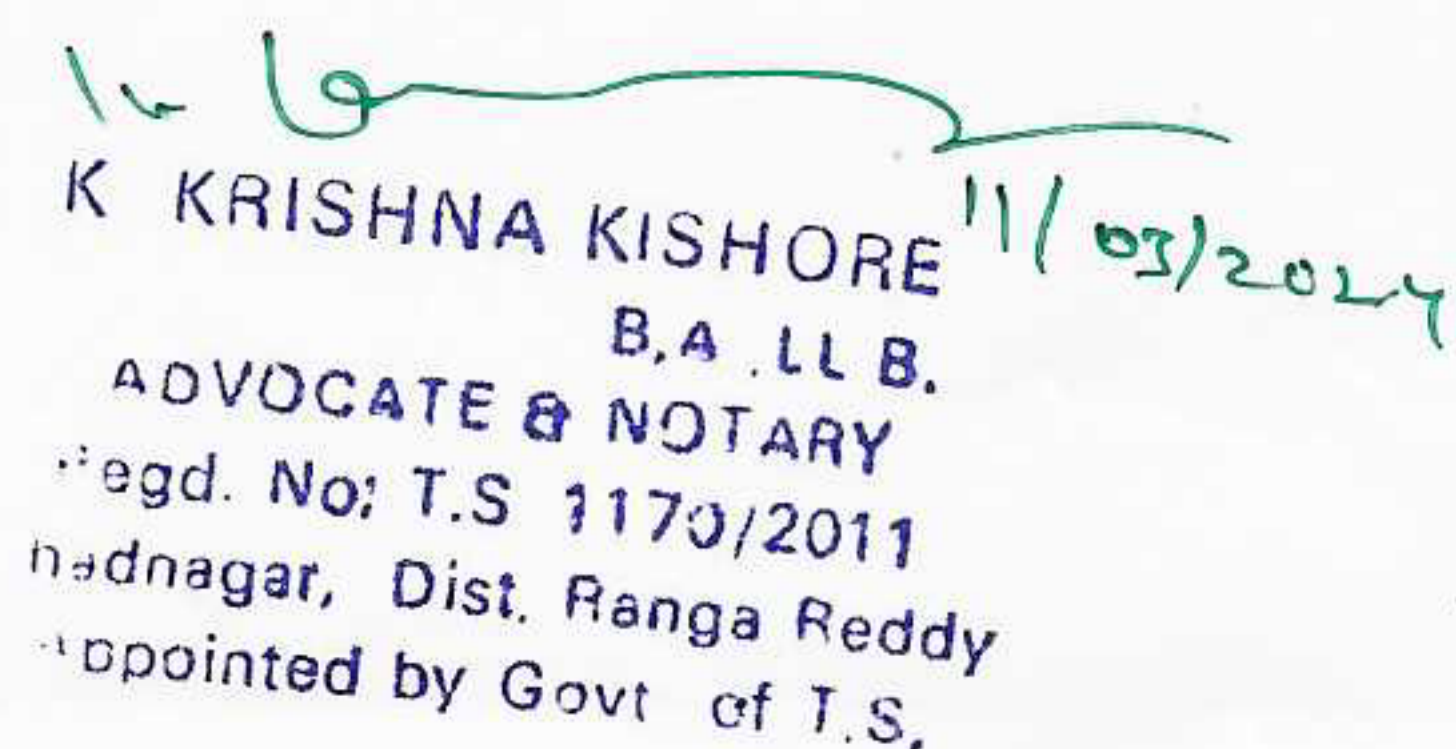 K KRISHNA KISHORE 11/03/2024
B.A. LL B.
ADVOCATE & NOTARY
egd. No: T.S 1170/2011
hadnagar, Dist. Ranga Reddy
ppointed by Govt of T.S.